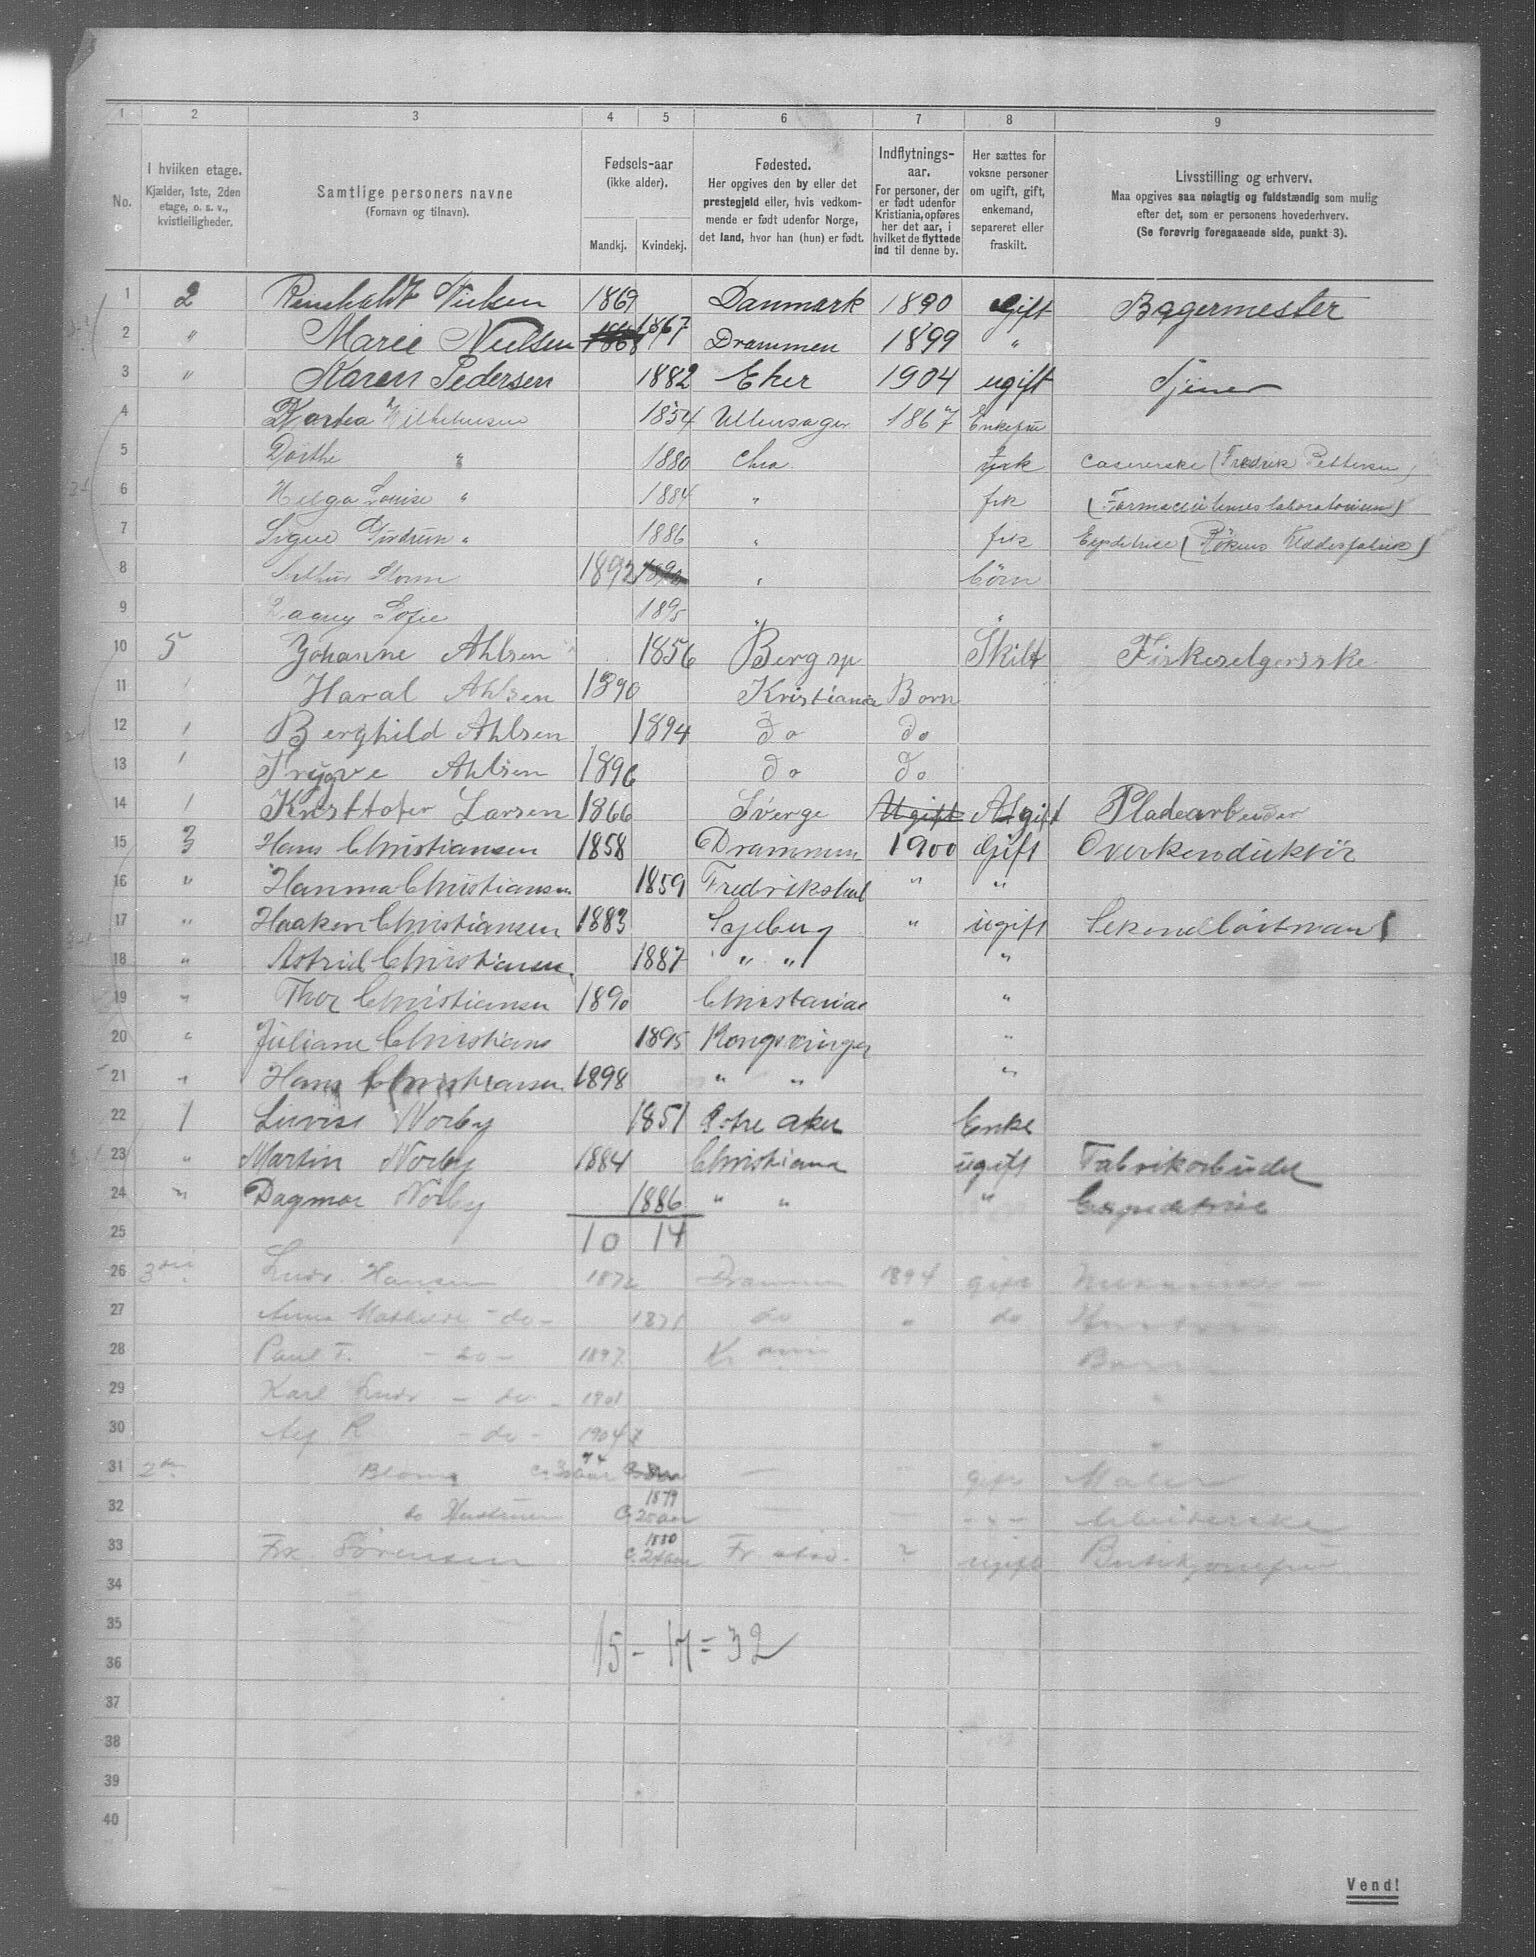 1 2 3 4 5 6 7 8 9
No.
I hviiken etage.
Kjælder, 1ste, 2den
etage, o. s. v.,
kvistleiligheder.
Samtlige personers navne
(Fornavn og tilnavn).
Fødsels-aar
(ikke alder).
Mandkj. Kvindekj.
Fødested.
Her opgives den by eller det
prestegjeld eller, hvis vedkom-
mende er født udenfor Norge,
det land, hvor han (hun) er født.
Indflytnings-
aar.
For personer, der
er født udenfor
Kristiania, opføres
her det aar, i
hvilket de flyttede
ind til denne by.
Her sættes for
voksne personer
om ugift, gift,
enkemand,
separeret eller
fraskilt.
Livsstilling og erhverv.
Maa opgives saa nøiagtig og fuldstændig som mulig
efter det, som er personens hovederhverv.
(Se forøvrig foregaaende side, punkt 3).
1 2 Reinholdt Nielsen 1869 Danmark 1890 gift Bagermester
2 " Marie Nielsen 1868 1867 Drammen 1899 "
3 " Karen Pedersen 1882 Eker 1904 ugift Tjener
4 Wilhelmsen 1854 Ullensager 1867 Enkefru
5 Dorthe " 1880 Chra. frk Casererske (Fredrik Pettersen)
6 Helga Louise " 1884 " frk (Farmaceuternes laboratorium)
7 Signe Gudrun " 1886 " frk
8 Arthur Storm 1892 " börn
9 Dagny Sofie 1895 " "
10 5 Johanne Ahlsen 1856 Berg sp Skilt Fiskeselgerske
11 Haral Ahlsen 1890 Kristiania Born
12 Berghild Ahlsen 1894 do do
13 Trygve Ahlsen 1896 do do
14 Kristtofer Larsen 1866 Sverge Ugift Ugift Pladearbeider
15 3 Hans Christiansen 1858 Drammen 1900 Gift Overkonduktör
16 " Hanna Christiansen 1859 Fredrikshal " "
17 " Haakon Christiansen 1883 Sapsborg " ugift Sekondløitnant
18 " Astrid Christiansen 1887 " " "
19 " Thor Christiansen 1890 Christania "
20 " Juliane Christians 1895 Kongsvinger "
21 " Hans Christiansen 1898 " " "
22 1 Lovise Norby 1851 Østre Aker Enke
23 " Martin Norby 1884 Christiana ugift Fabrikarbeider
24 " Dagmar Norby 1886 " " " Expeditrise
25 10 14
26 Ludv. Hansen 1872 Drammen 1894 gift
27 Anna Mathilde - do - 1871 do " do
28 Paul T. - do - 1897 Barn
29 Karl Ludv - do - 1901
30 Alf R - do - 1904
31 2 Blom gift Maler
32 do Hustruen 1879 Arbeiderske
33 Frk. Sörensen 1880 ? ugift
34
35 15 - 17 = 32
36
37
38
39
40
Vend!